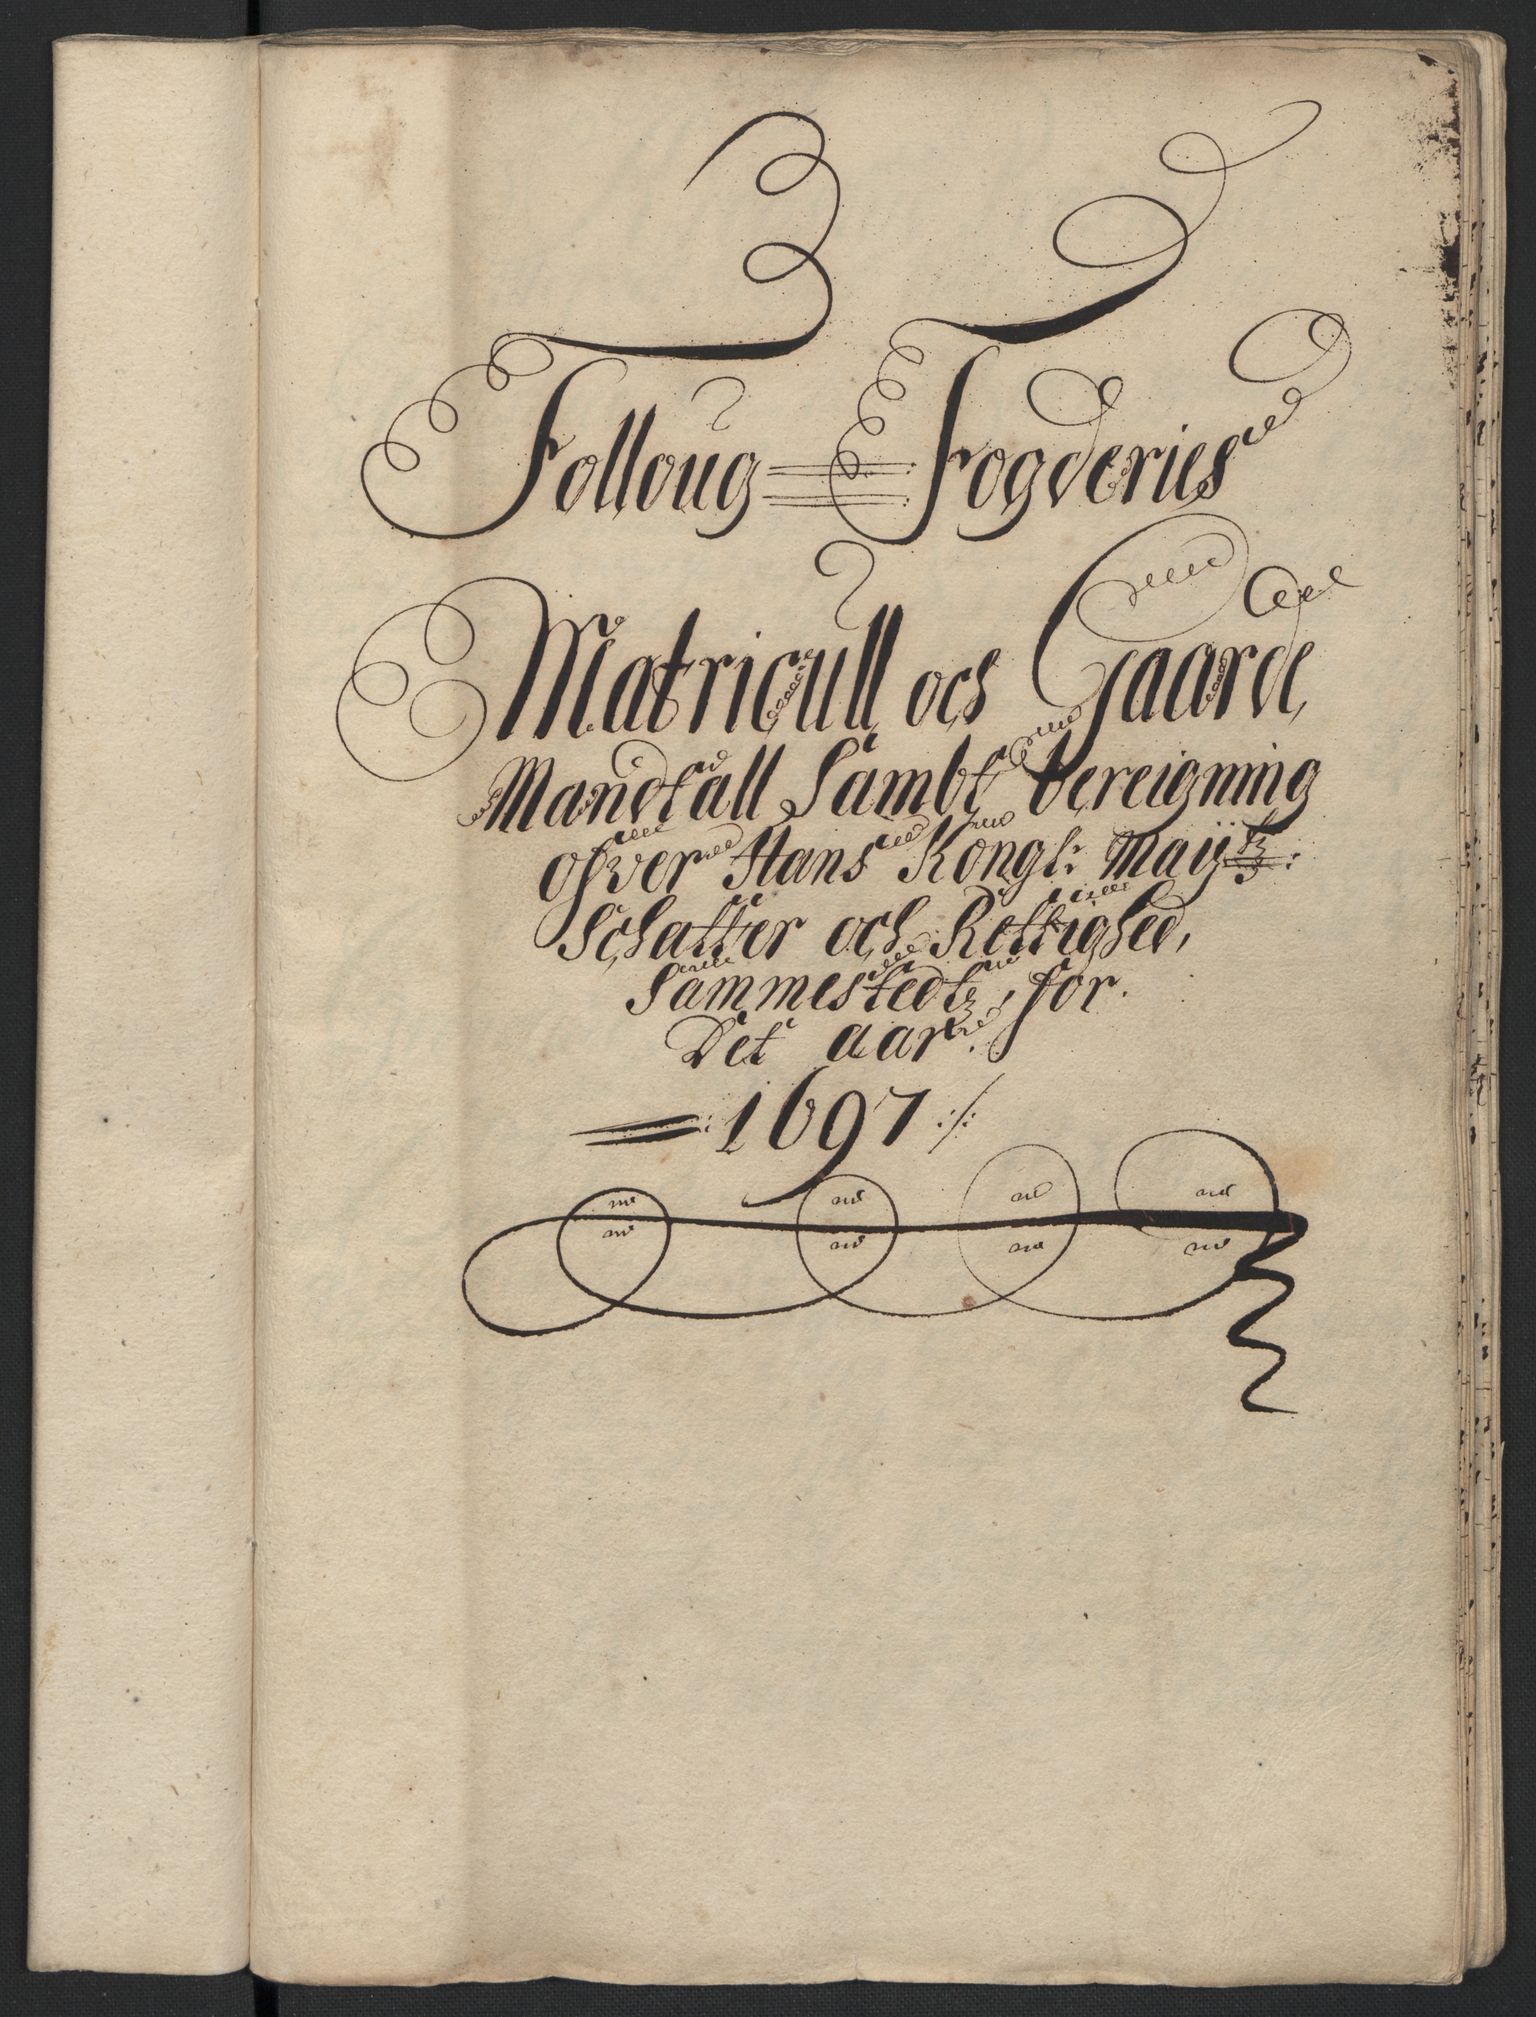 Folloug= Fogderies
Matricull och Gaarde,
Mandtall Sambt bereigning
ofver Hans Kongl: Maÿtz:
Schatter och Rettighed,
Sammestedtz, for.
Det aar.
=:1697:/: